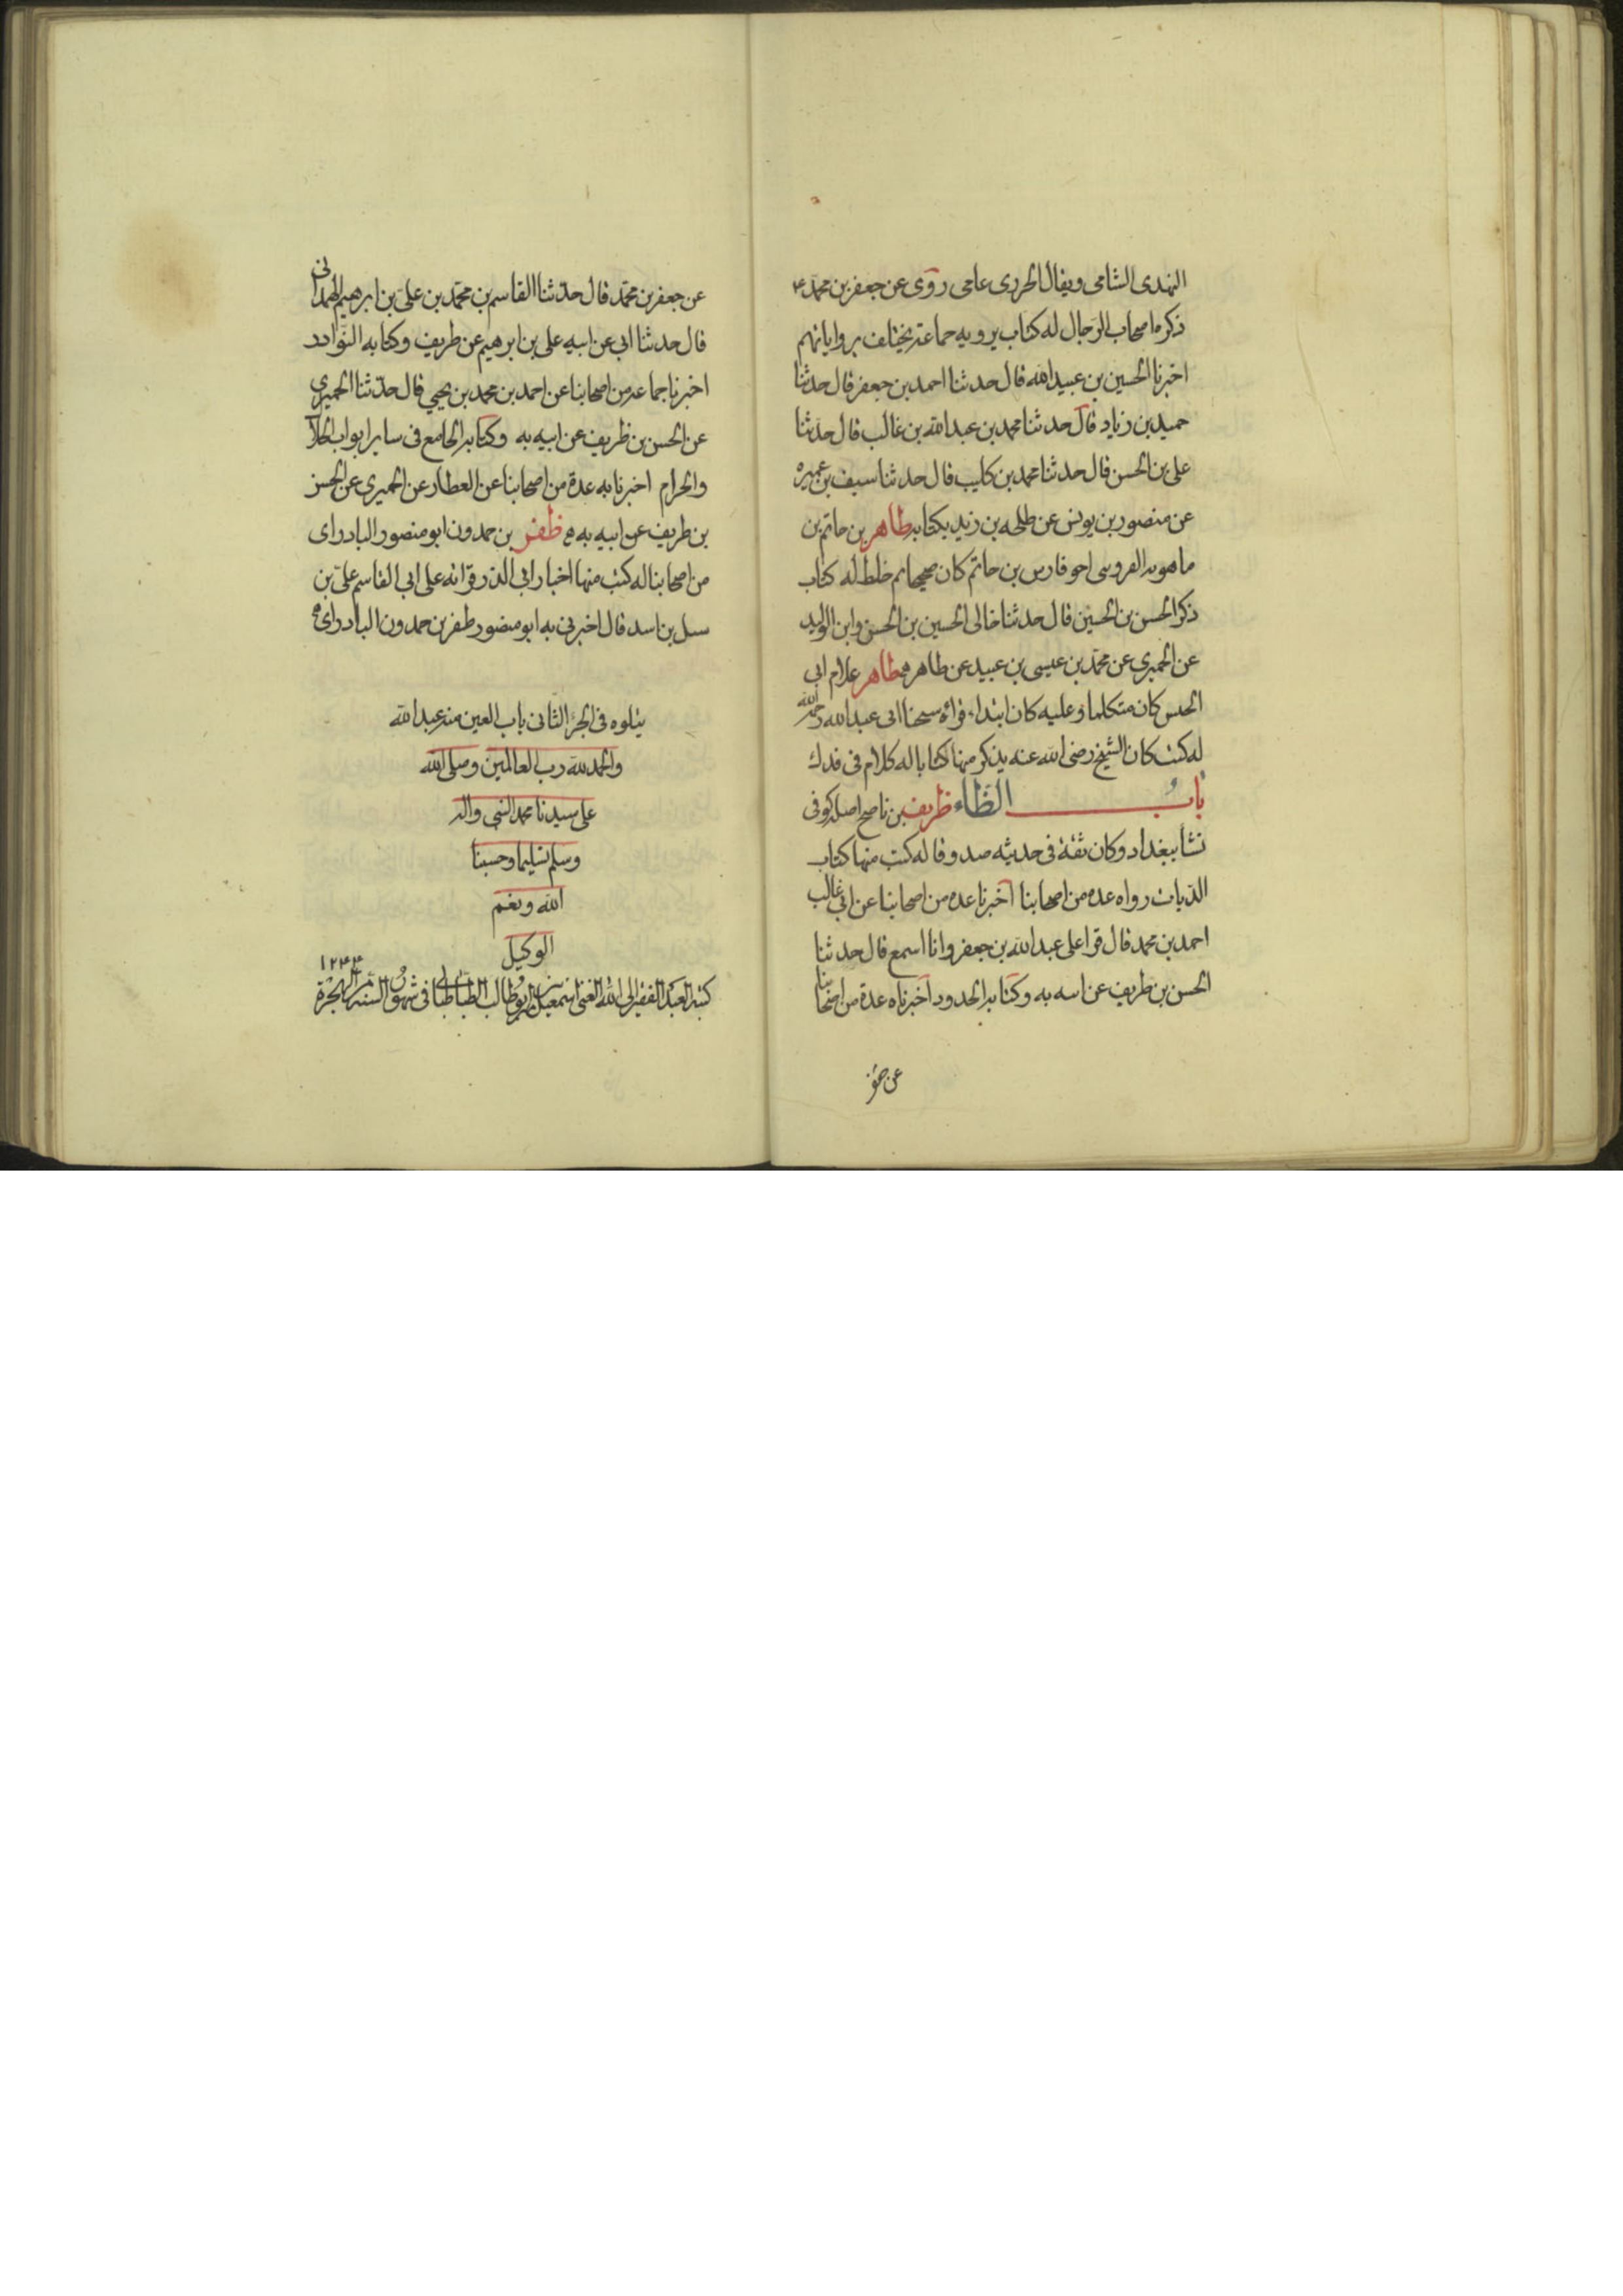 النهدى الشامى ويقال الخزرى عامى روى عن جعفر بن محمد ع
ذكره اصحاب الرجال له كتاب يرويه جماعة يختلف برواياتهم
اخبرنا الحسين بن عبيد الله قال حدثنا احمد بن جعفر قال حدثنا
حميد بن زياد قال حدثنا محمد بن عبد الله بن غالب قال حدثنا
على بن الحسن قال حدثنا محمد بن كليب قال حدثنا سيف بن عميره
عن منصور بن يونس عن طلحه بن زيد بكتابه طاهر بن حاتم بن
ماهويه القزوينى اخو فارس بن حاتم كان صحيحا ثم خلط له كتاب
ذكر الحسن بن الحسين قال حدثنا خالى الحسين بن الحسن وابن الوليد
عن الحميرى عن محمد بن عيسى بن عبيد عن طاهر ه طاهر غلام ابى
الحبس كان متكلما وعليه كان ابتداء قراة شيخنا ابى عبد الله رحمه الله
له كتب كان الشيخ رضى الله عنه يذكر منها كتابا له كلام فى فدك
باب الظاء ظريف بن ناصح اصله كوفى
نشا ببغداد وكان ثقة فى حديثه صدوقا له كتب منها كتاب
الديات رواه عده من اصحابنا اخبرنا عده من اصحابنا عن ابى غالب
احمد بن محمد قال قرا على عبد الله بن جعفر وانا اسمع قال حدثنا
الحسن بن طريف عن ابيه به وكتابه الحدود اخبرناه عدة من اصحابنا
عن جعفر
عن جعفر بن محمد قال حدثنا القاسم بن محمد بن على بن ابرهيم الهمدانى
قال حدثنا ابى عن ابيه على بن ابرهيم عن طريف وكتابه النوادر
اخبرنا جماعه من اصحابنا عن احمد بن محمد بن يحيى قال حدثنا الحميرى
عن الحسن بن ظريف عن ابيه به وكتابه الجامع فى ساير ابواب الحلال
والحرام اخبرنا به عدة من اصحابنا عن العطار عن الحميرى عن الحسن
بن طريف عن ابيه به ه ظفر بن حمدون ابو منصور البادراى
من اصحابنا له كتب منها اخبار ابى الذر قراته على ابى القاسم على بن
سبل بن اسد قال اخبرنى به ابو منصور ظفر بن حمدون البادراى ه
يتلوه فى الجزء الثانى باب العين منه عبد الله
والحمد لله رب العالمين وصلى الله
على سيدنا محمد النبى واله
وسلم تسليما وحسبنا
الله ونعم
الوكيل
كتبه العبد الفقير الى الله الغنى اسمعيل بن ابوطالب الطباطبائى فى شهور السنه من الهجرة ١٢٤٤